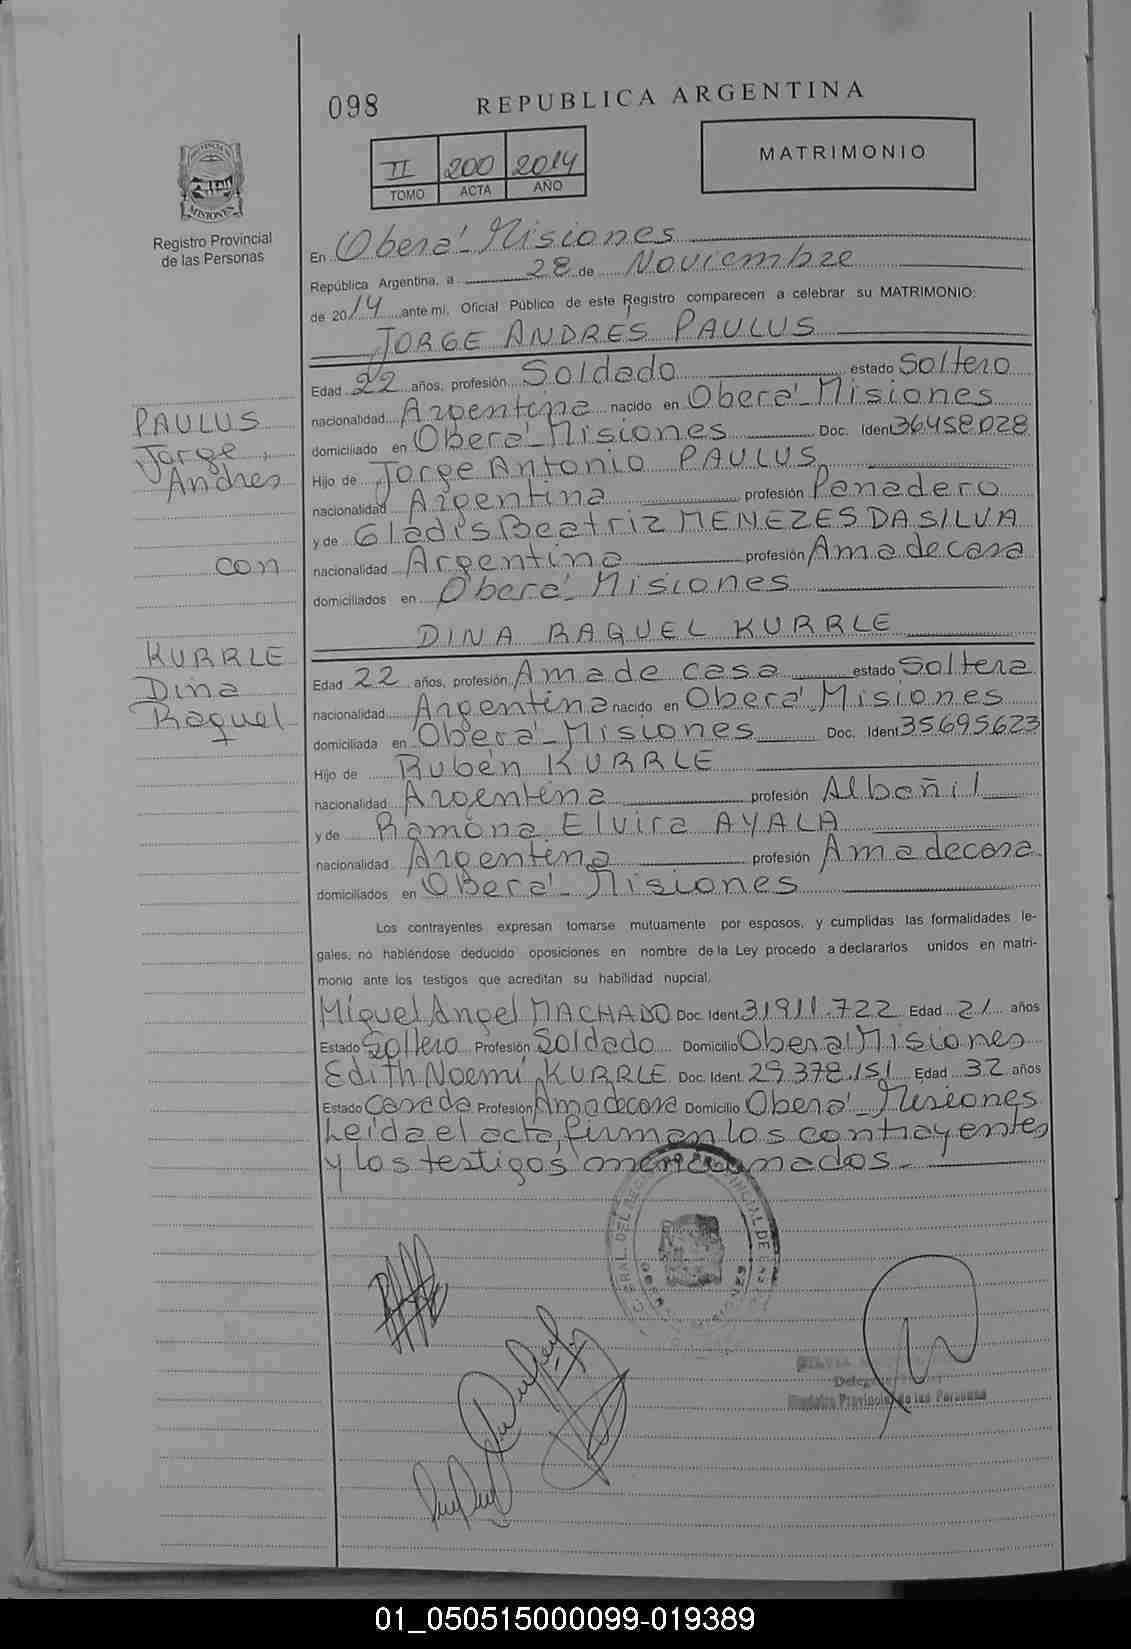 098
REPUBLICA ARGENTINA
II 200 2014
TOMO ACTA AÑO
MATRIMONIO
PROVINCIA DE
MISIONES
Registro Provincial
de las Personas
En Oberá - Misiones
República Argentina, a 28 de Noviembre
de 2014 ante mi, Oficial Público de este Registro comparecen a celebrar su MATRIMONIO:
JORGE ANDRES PAULUS
Edad 22 años, profesión Soldado estado Soltero
nacionalidad Argentina nacido en Oberá - Misiones
domiciliado en Oberá - Misiones Doc. Ident 36458028
Hijo de Jorge Antonio PAULUS
nacionalidad Argentina profesión Panadero
y de Gladis Beatriz MENEZES DA SILVA
nacionalidad Argentina profesión Ama de casa
domiciliados en Oberá - Misiones
PAULUS
Jorge
Andres
con
KURRLE
Dina
Raquel
DINA RAQUEL KURRLE
Edad 22 años, profesión Ama de casa estado Soltera
nacionalidad Argentina nacido en Oberá - Misiones
domiciliada en Oberá - Misiones Doc. Ident 35695623
Hijo de Rubén KURRLE
nacionalidad Argentina profesión Albañil
y de Ramona Elvira AYALA
nacionalidad Argentina profesión Ama de casa
domiciliados en Oberá - Misiones
Los contrayentes expresan tomarse mutuamente por esposos, y cumplidas las formalidades le-
gales, no habiéndose deducido oposiciones en nombre de la Ley procedo a declararlos unidos en matri-
monio ante los testigos que acreditan su habilidad nupcial.
Miguel Angel MACHADO Doc. Ident 31911.722 Edad 21 años
Estado Soltero Profesión Soldado Domicilio Oberá Misiones
Edith Noemí KURRLE Doc. Ident. 29.378.151 Edad 32 años
Estado Casada Profesión Ama de casa Domicilio Oberá - Misiones
Leída el acta, firman los contrayentes
y los testigos mencionados.
Registro Provincial de las Personas
01_050515000099-019389